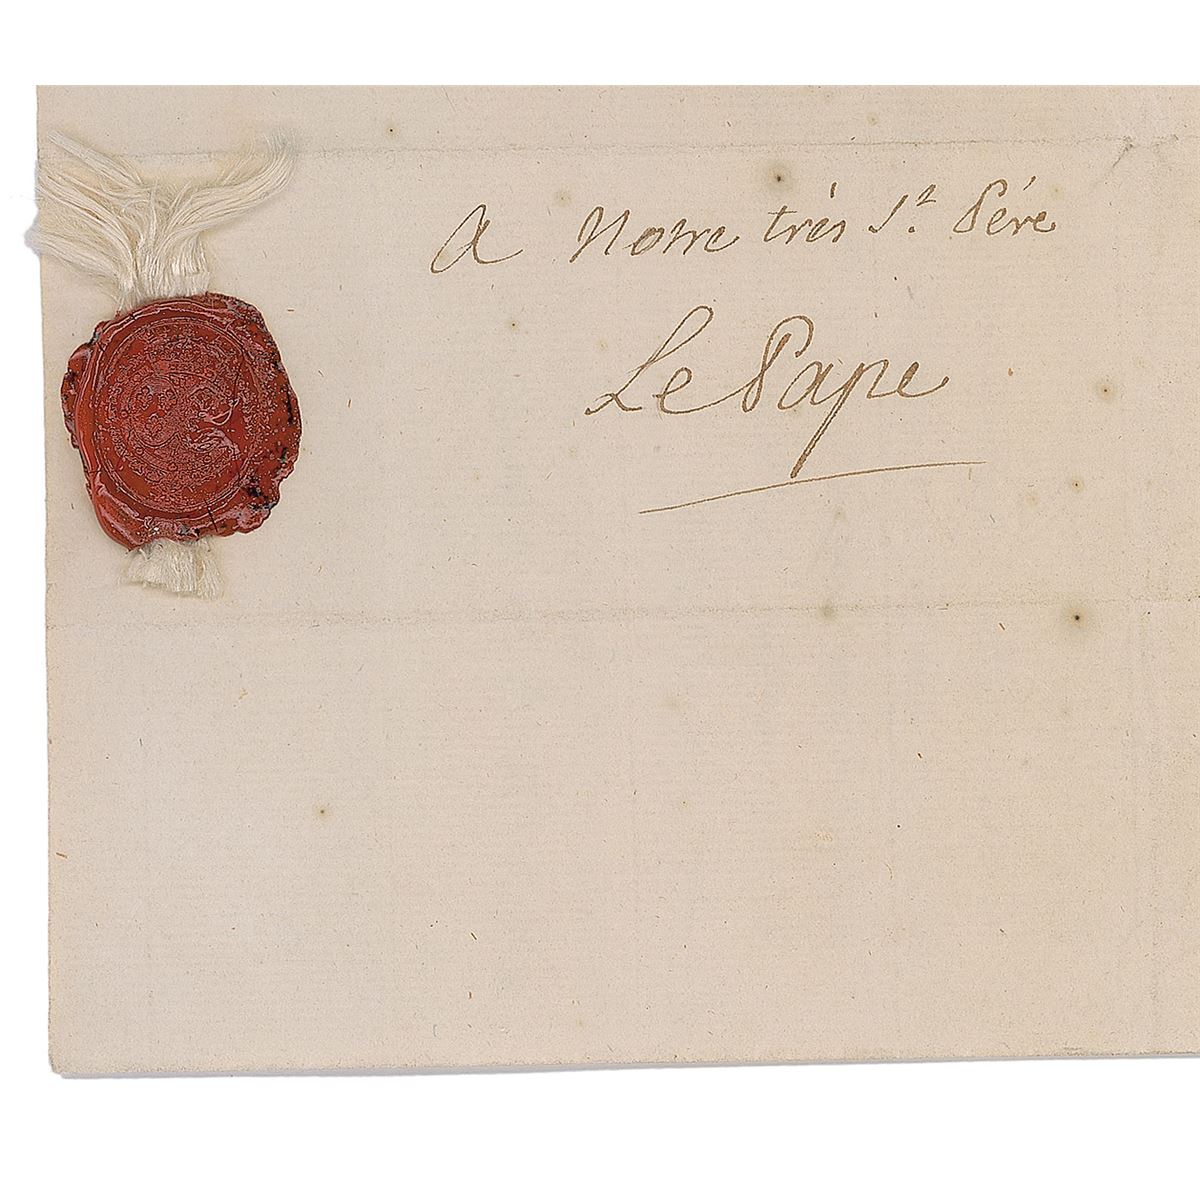 A Notre très S.t Père
Le Pape